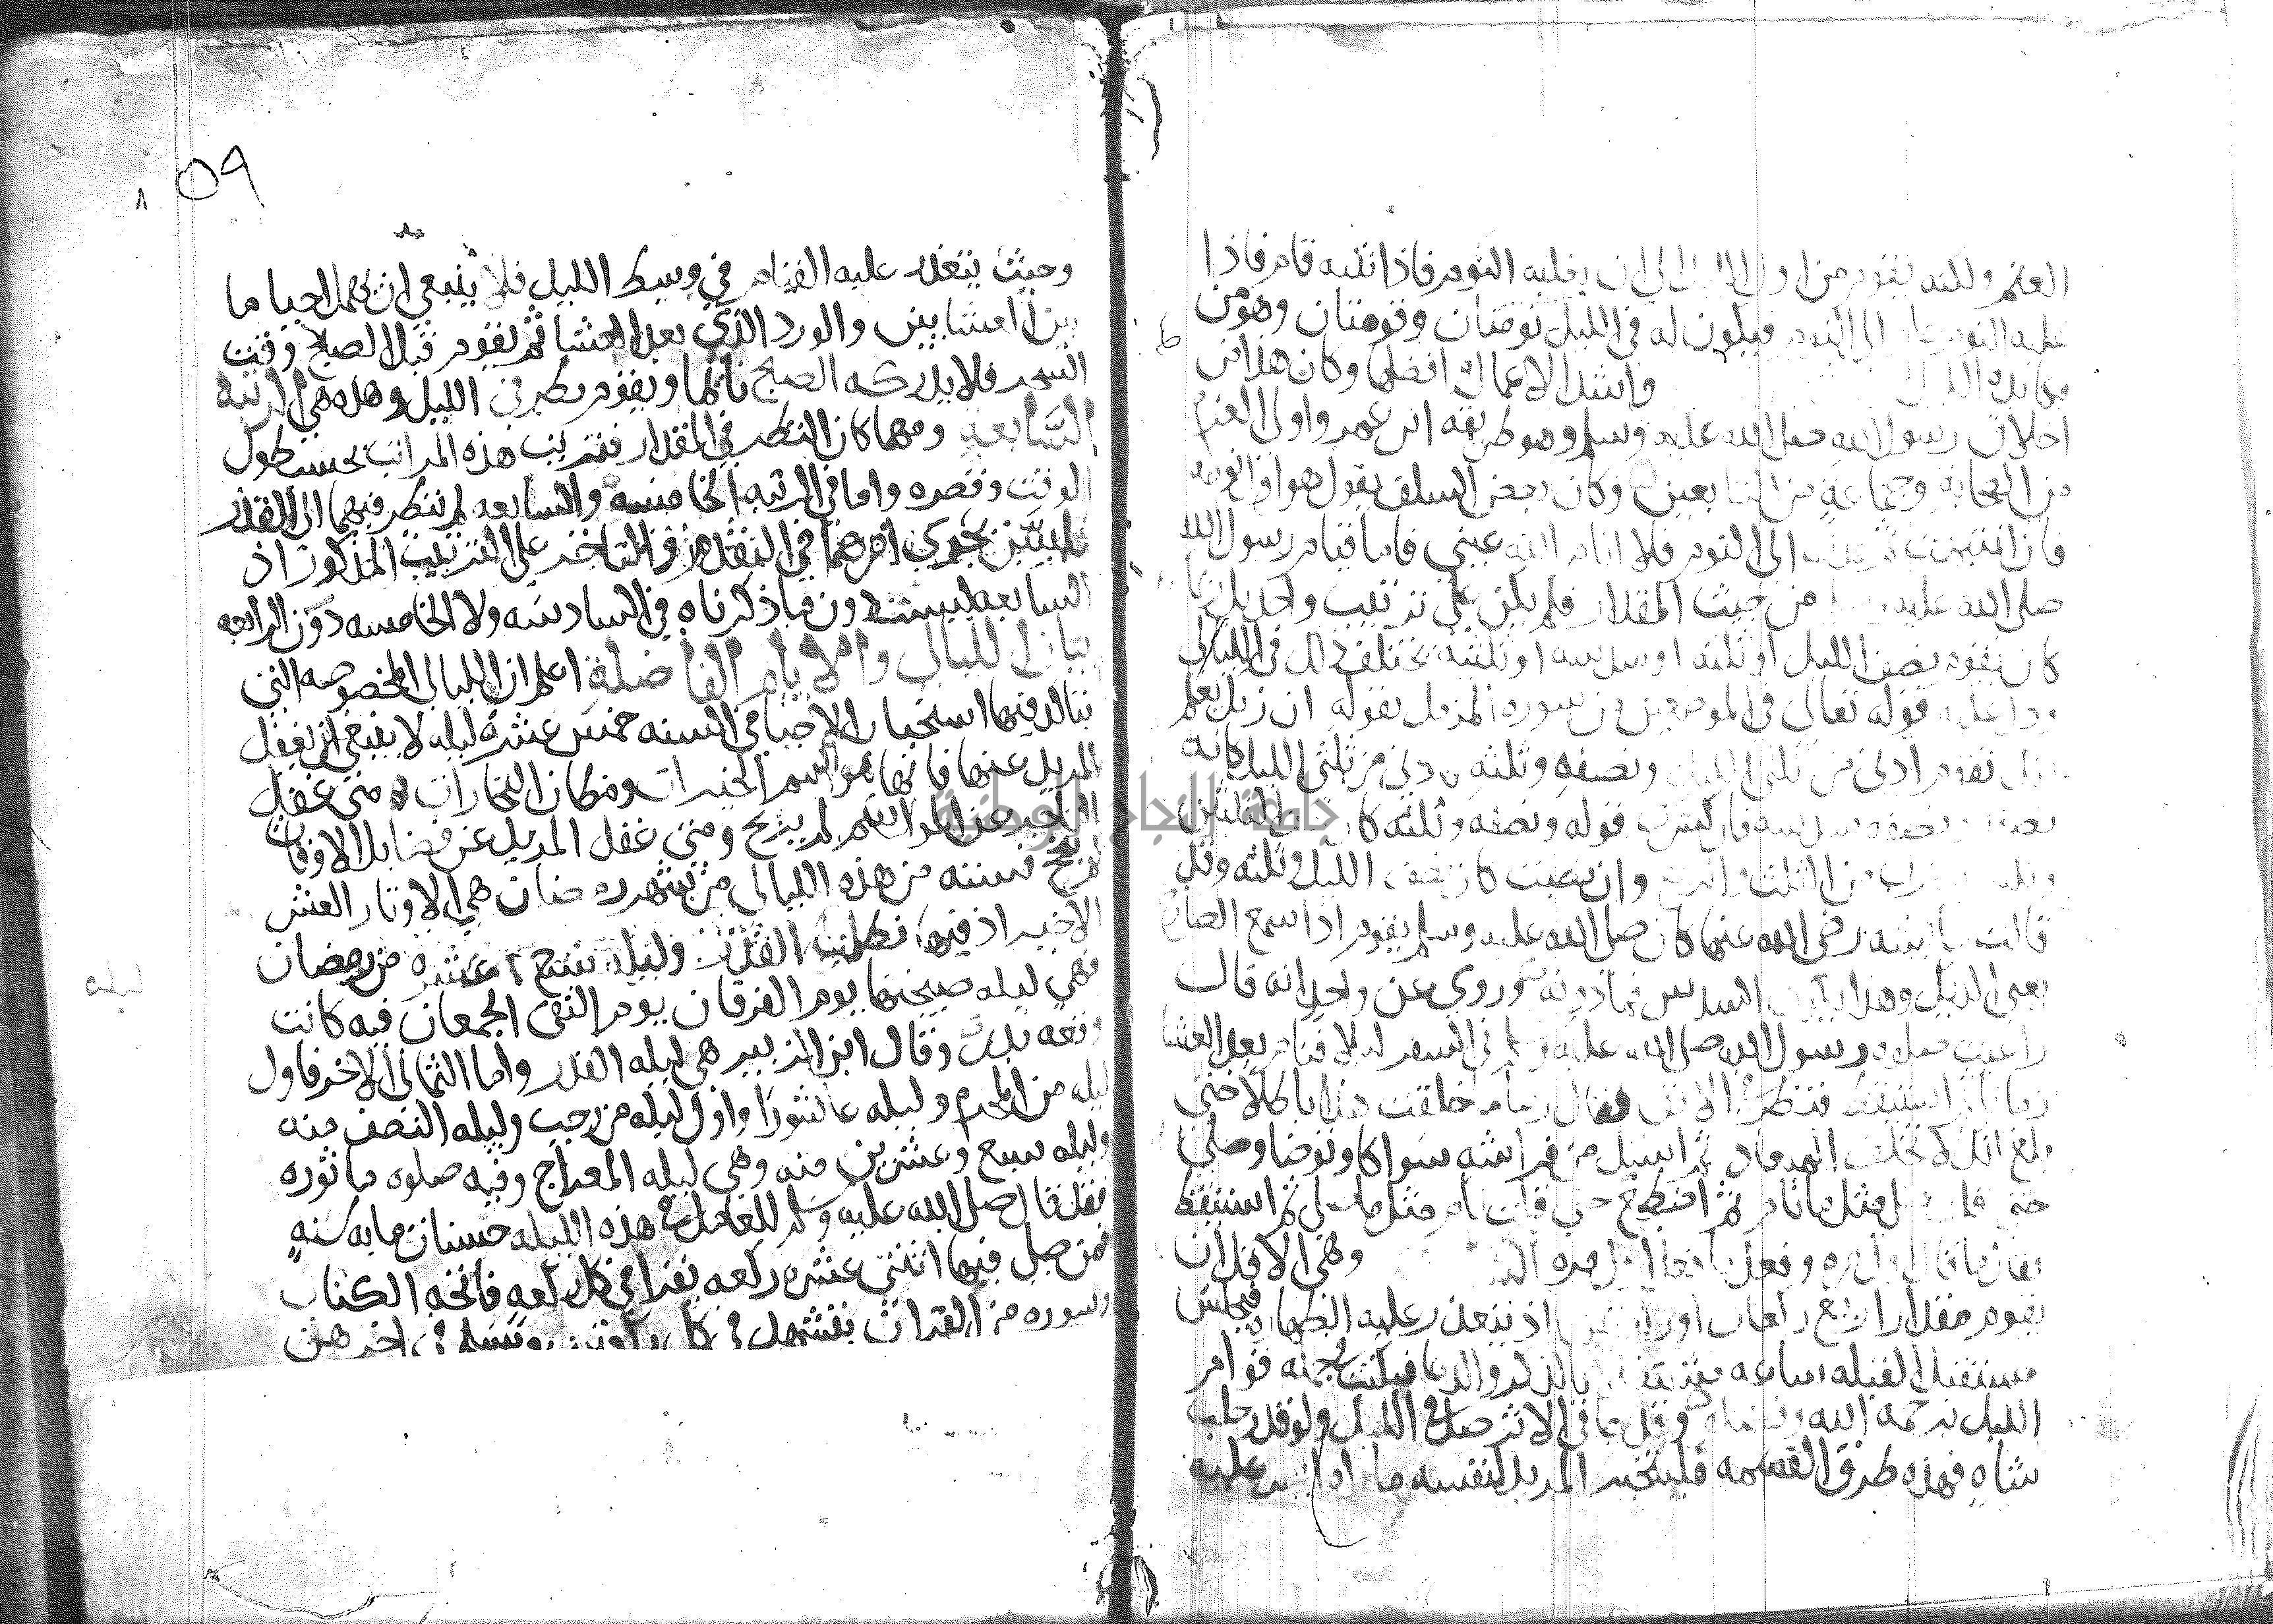 العلم ولكنه يقوم من اول الليل الى ان يغلبه النوم فاذا انتبه قام فاذا
غلبه النوم عاد الى النوم فيكون له في الليل نومتان وقومتان وهو من
مكابدة الليل واشد الاعمال وافضلها وكان هذا من
اخلاق رسول الله صلى الله عليه وسلم وهو طريقه ابن عمر واولى العزم
من الصحابة وجماعة من التابعين وكان بعض السلف يقول هو اول نومه
فان انتبهت ثم عدت الى النوم فلا انام الله عيني فاما قيام رسول الله
صلى الله عليه وسلم من حيث المقدار فلم يكن على ترتيب واحد بل ربما
كان يقوم نصف الليل او ثلثه او سدسه او ثلثيه يختلف ذلك في الليالي
ودل عليه قوله تعالى في الموضعين من سوره المزمل بقوله ان ربك يعلم
انك تقوم ادنى من ثلثي الليل ونصفه وثلثه فادنى من ثلثي الليل كانه
نصفه ونصف سدسه فان كسرت قوله ونصفه وثلثه كان نصف الثلثين
وثلثه فيقرب من الثلث والربع وان نصبت كان نصف الليل وثلثه وقد
قالت عايشه رضى الله عنها كان صلى الله عليه وسلم يقوم اذا سمع الصارخ
يعنى الديك وهذا يكون السدس فما دونه وروي عن واحد انه قال
راعيت صلوه رسول الله صلى الله عليه وسلم في السفر ليلا فنام بعد العشا
زمانا ثم استيقظ فنظر في الافق فقال ربنا ما خلقت هذا باطلا حتى
بلغ انك لا تخلف الميعاد ثم استل من فراشه سواكا وتوضا وصلى
حتى قلت صلى مثل ما نام ثم اضطجع حتى قلت نام مثل ما صلى ثم استيقظ
فقال ما قال اول مره وفعل ما فعل اول مره وهى الاقل ان
يقوم مقدار اربع ركعات او ركعتين اذ تتعذر عليه الطهاره فيجلس
مستقبل القبله ساعه مشتغلا بالذكر والدعا فيكتب في جمله قوام
الليل برحمه الله وفضله وقد جا في الاثر صل من الليل ولو قدر حلب
شاه فهذه طرق القسمه فليتخير المريد لنفسه ما يراه ايسر عليه
٥٩
وحيث يتعذر عليه القيام في وسط الليل فلا ينبغي ان يهمل احيا ما
بين العشايين والورد الذي بعد العشا ثم يقوم قبل الصبح وقت
السحر فلا يدركه الصبح نائما ويقوم بطرفي الليل وهذه هي المرتبه
السابعه ومهما كان النظر في المقدار فترتيب هذه المراتب بحسب طول
الوقت وقصره واما في المرتبه الخامسه والسابعه لم ننظر فيهما الى القدر
فليس يجري امرهما في التقدم والتاخر على الترتيب المذكور اذ
السابعه ليست دون ما ذكرناه في السادسه ولا الخامسه دون الرابعه
بيان الليالى والايام الفاضلة اعلم ان الليالى المخصوصه التي
يتاكد فيها استحباب الاحيا في السنه خمس عشره ليله لا ينبغي ان يغفل
المريد عنها فانها مواسم الخيرات ومظان التجارات ومتى غفل
التاجر عن المواسم لم يربح ومتى غفل المريد عن فضايل الاوقات
لم ينجح سته من هذه الليالي من شهر رمضان هي الاوتار العشر
الاخير اذ فيها تطلب ليله القدر وليله سبع عشره من رمضان
فهي ليله صبيحتها يوم الفرقان يوم التقى الجمعان فيه كانت
وقعه بدر وقال ابن الزبير هي ليله القدر واما الثمانى الاخر فاول
ليله من المحرم وليله عاشورا واول ليله من رجب وليله النصف منه
وليله سبع وعشرين منه وهي ليله المعراج وفيه صلوه ماثوره
فقد قال صلى الله عليه وسلم للعامل في هذه الليله حسنات مايه سنه
فمن صلى فيها اثنتى عشره ركعه يقرا في كل ركعه فاتحه الكتاب
وسوره من القران يتشهد في كل ركعتين ويسلم في اخرهن
جامعة النجاح الوطنية